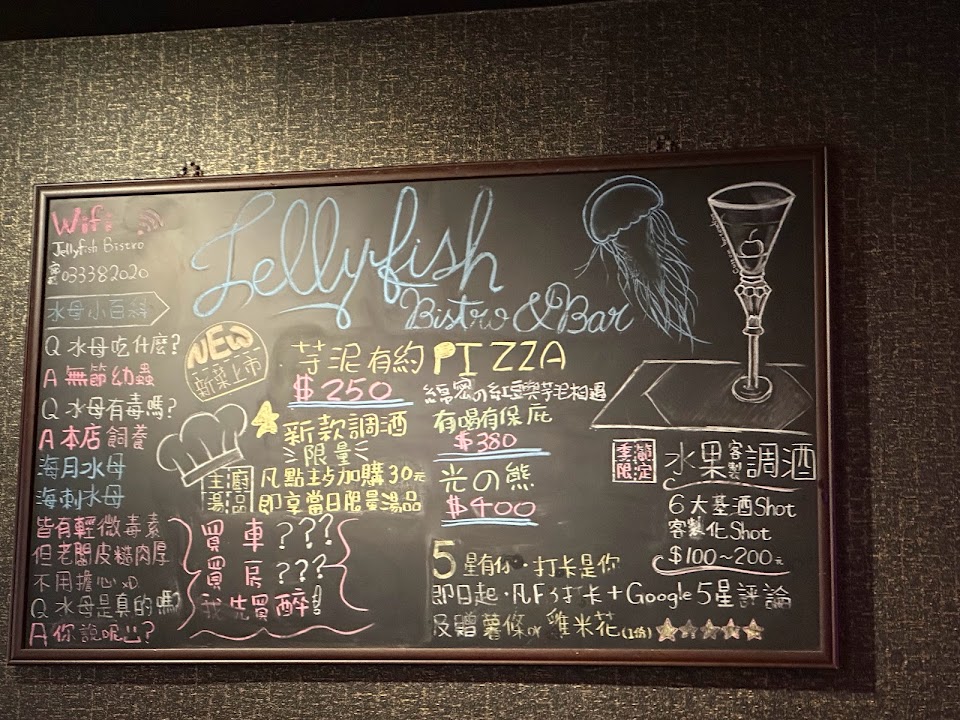 Wifi
Jellyfish Bistro
033382020
水母小百科
Q 水母吃什麼?
A 無節幼蟲
Q 水母有毒嗎?
A 本店飼養
海月水母
海刺水母
皆有輕微毒素
但老闆皮糙肉厚
不用擔心xD
Q 水母是真的嗎?
A 你說呢!!?
Jellyfish
Bistro & Bar
NEW
新菜上市
芋泥有約 PIZZA
$250
綿密の紅豆與芋泥相遇
新款調酒
限量
有喝有保庇
$380
光の熊
$400
主廚
湯品
凡點主食加購30元
即享當日限量湯品
買車???
買房???
我先買醉!
5星有你·打卡是你
即日起·凡FB打卡+Google 5星評論
及贈薯條or雞米花(1份)
季節
限定
水果客製調酒
6大基酒Shot
客製化Shot
$100~200元